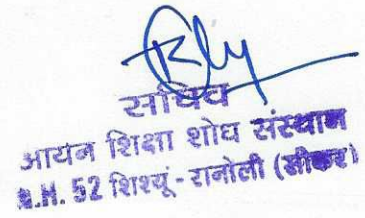 सचिव
आयन शिक्षा शोध संस्थान
N.H. 52 शिश्यूं - रानोली (सीकर)